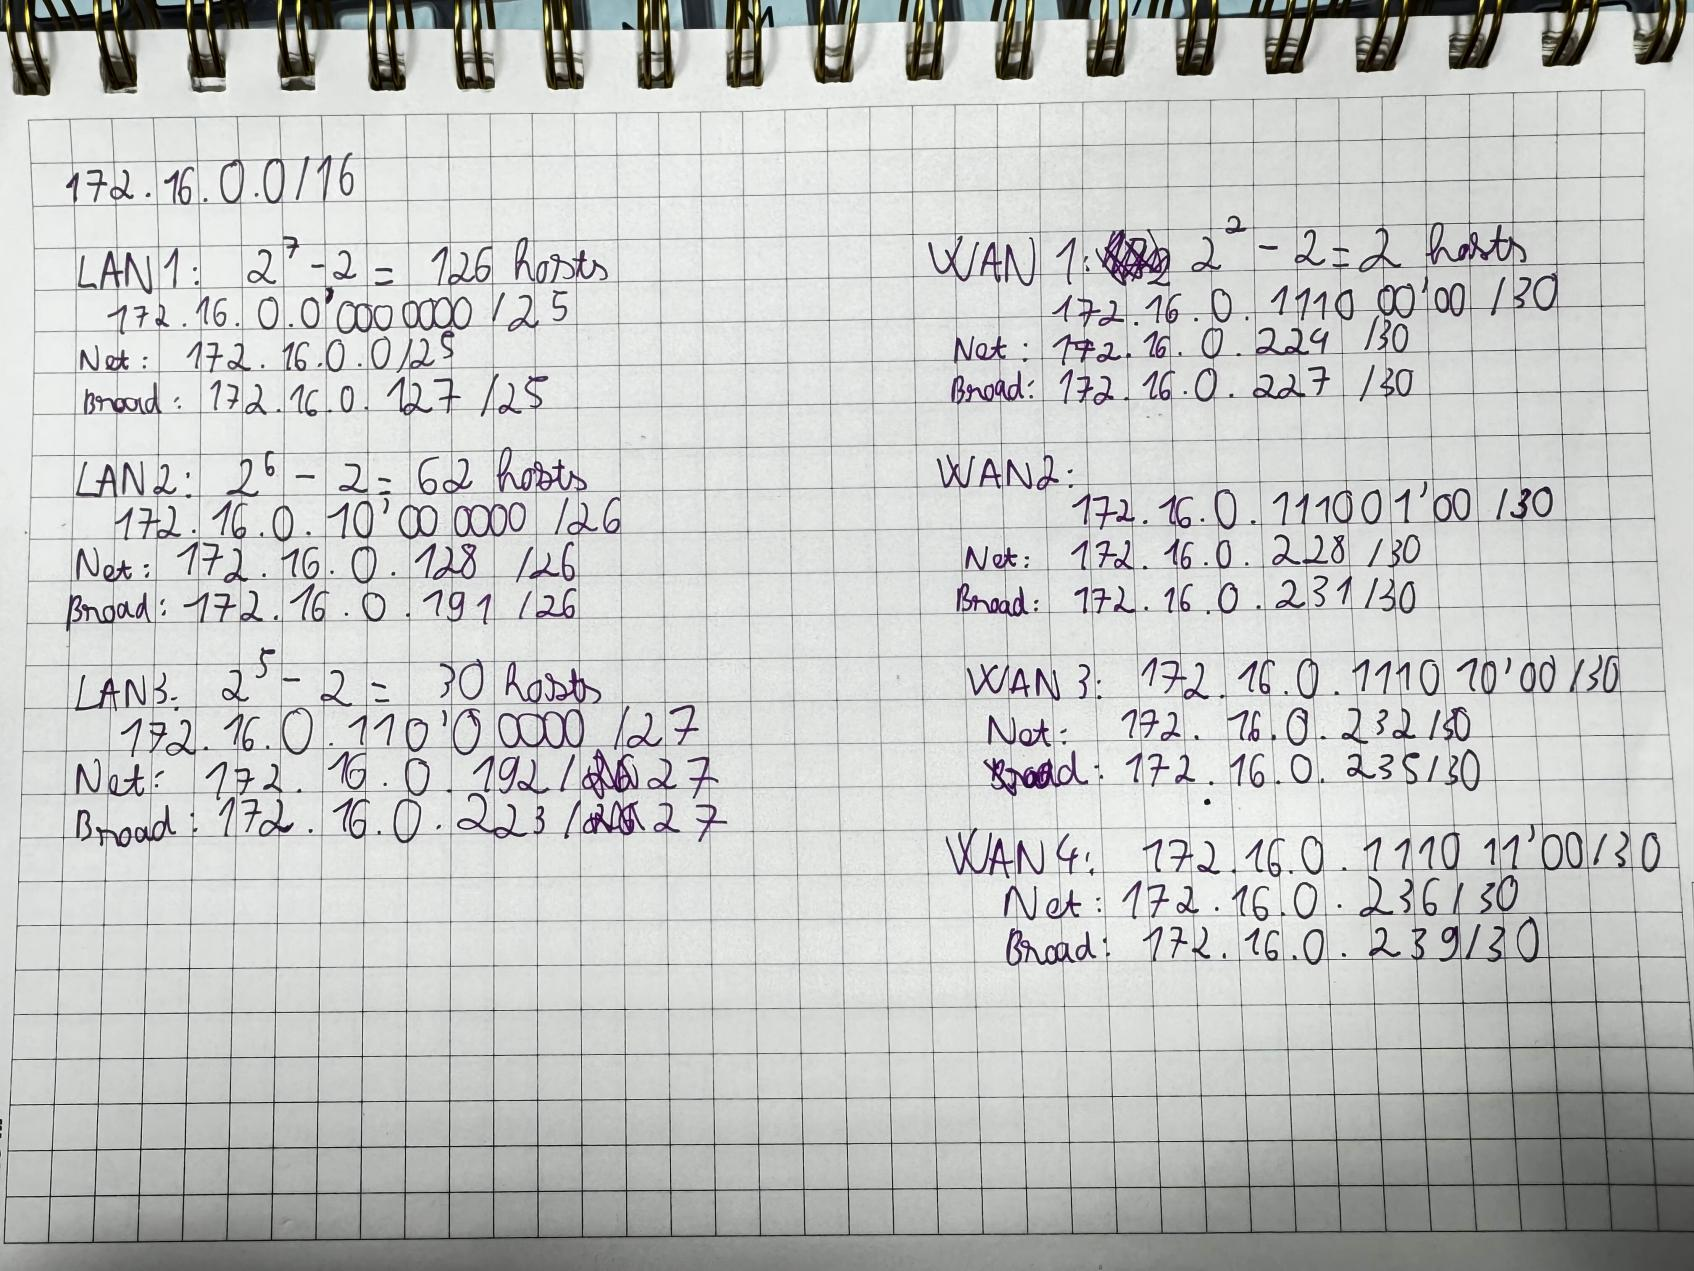 172.16.0.0/16
LAN1: 2^7 - 2 = 126 hosts
172.16.0.0'000 0000 /25
Net: 172.16.0.0/25
Broad: 172.16.0.127 /25
LAN2: 2^6 - 2 = 62 hosts
172.16.0.10'00 0000 /26
Net: 172.16.0.128 /26
Broad: 172.16.0.191 /26
LAN3: 2^5 - 2 = 30 hosts
172.16.0.110'0 0000 /27
Net: 172.16.0.192/27
Broad: 172.16.0.223/27
WAN 1: 2^2 - 2 = 2 hosts
172.16.0.1110 00'00 /30
Net: 172.16.0.224 /30
Broad: 172.16.0.227 /30
WAN2:
172.16.0.1110 01'00 /30
Net: 172.16.0.228 /30
Broad: 172.16.0.231/30
WAN 3: 172.16.0.1110 10'00 /30
Net: 172.16.0.232/30
Broad: 172.16.0.235/30
WAN 4: 172.16.0.1110 11'00/30
Net: 172.16.0.236/30
Broad: 172.16.0.239/30